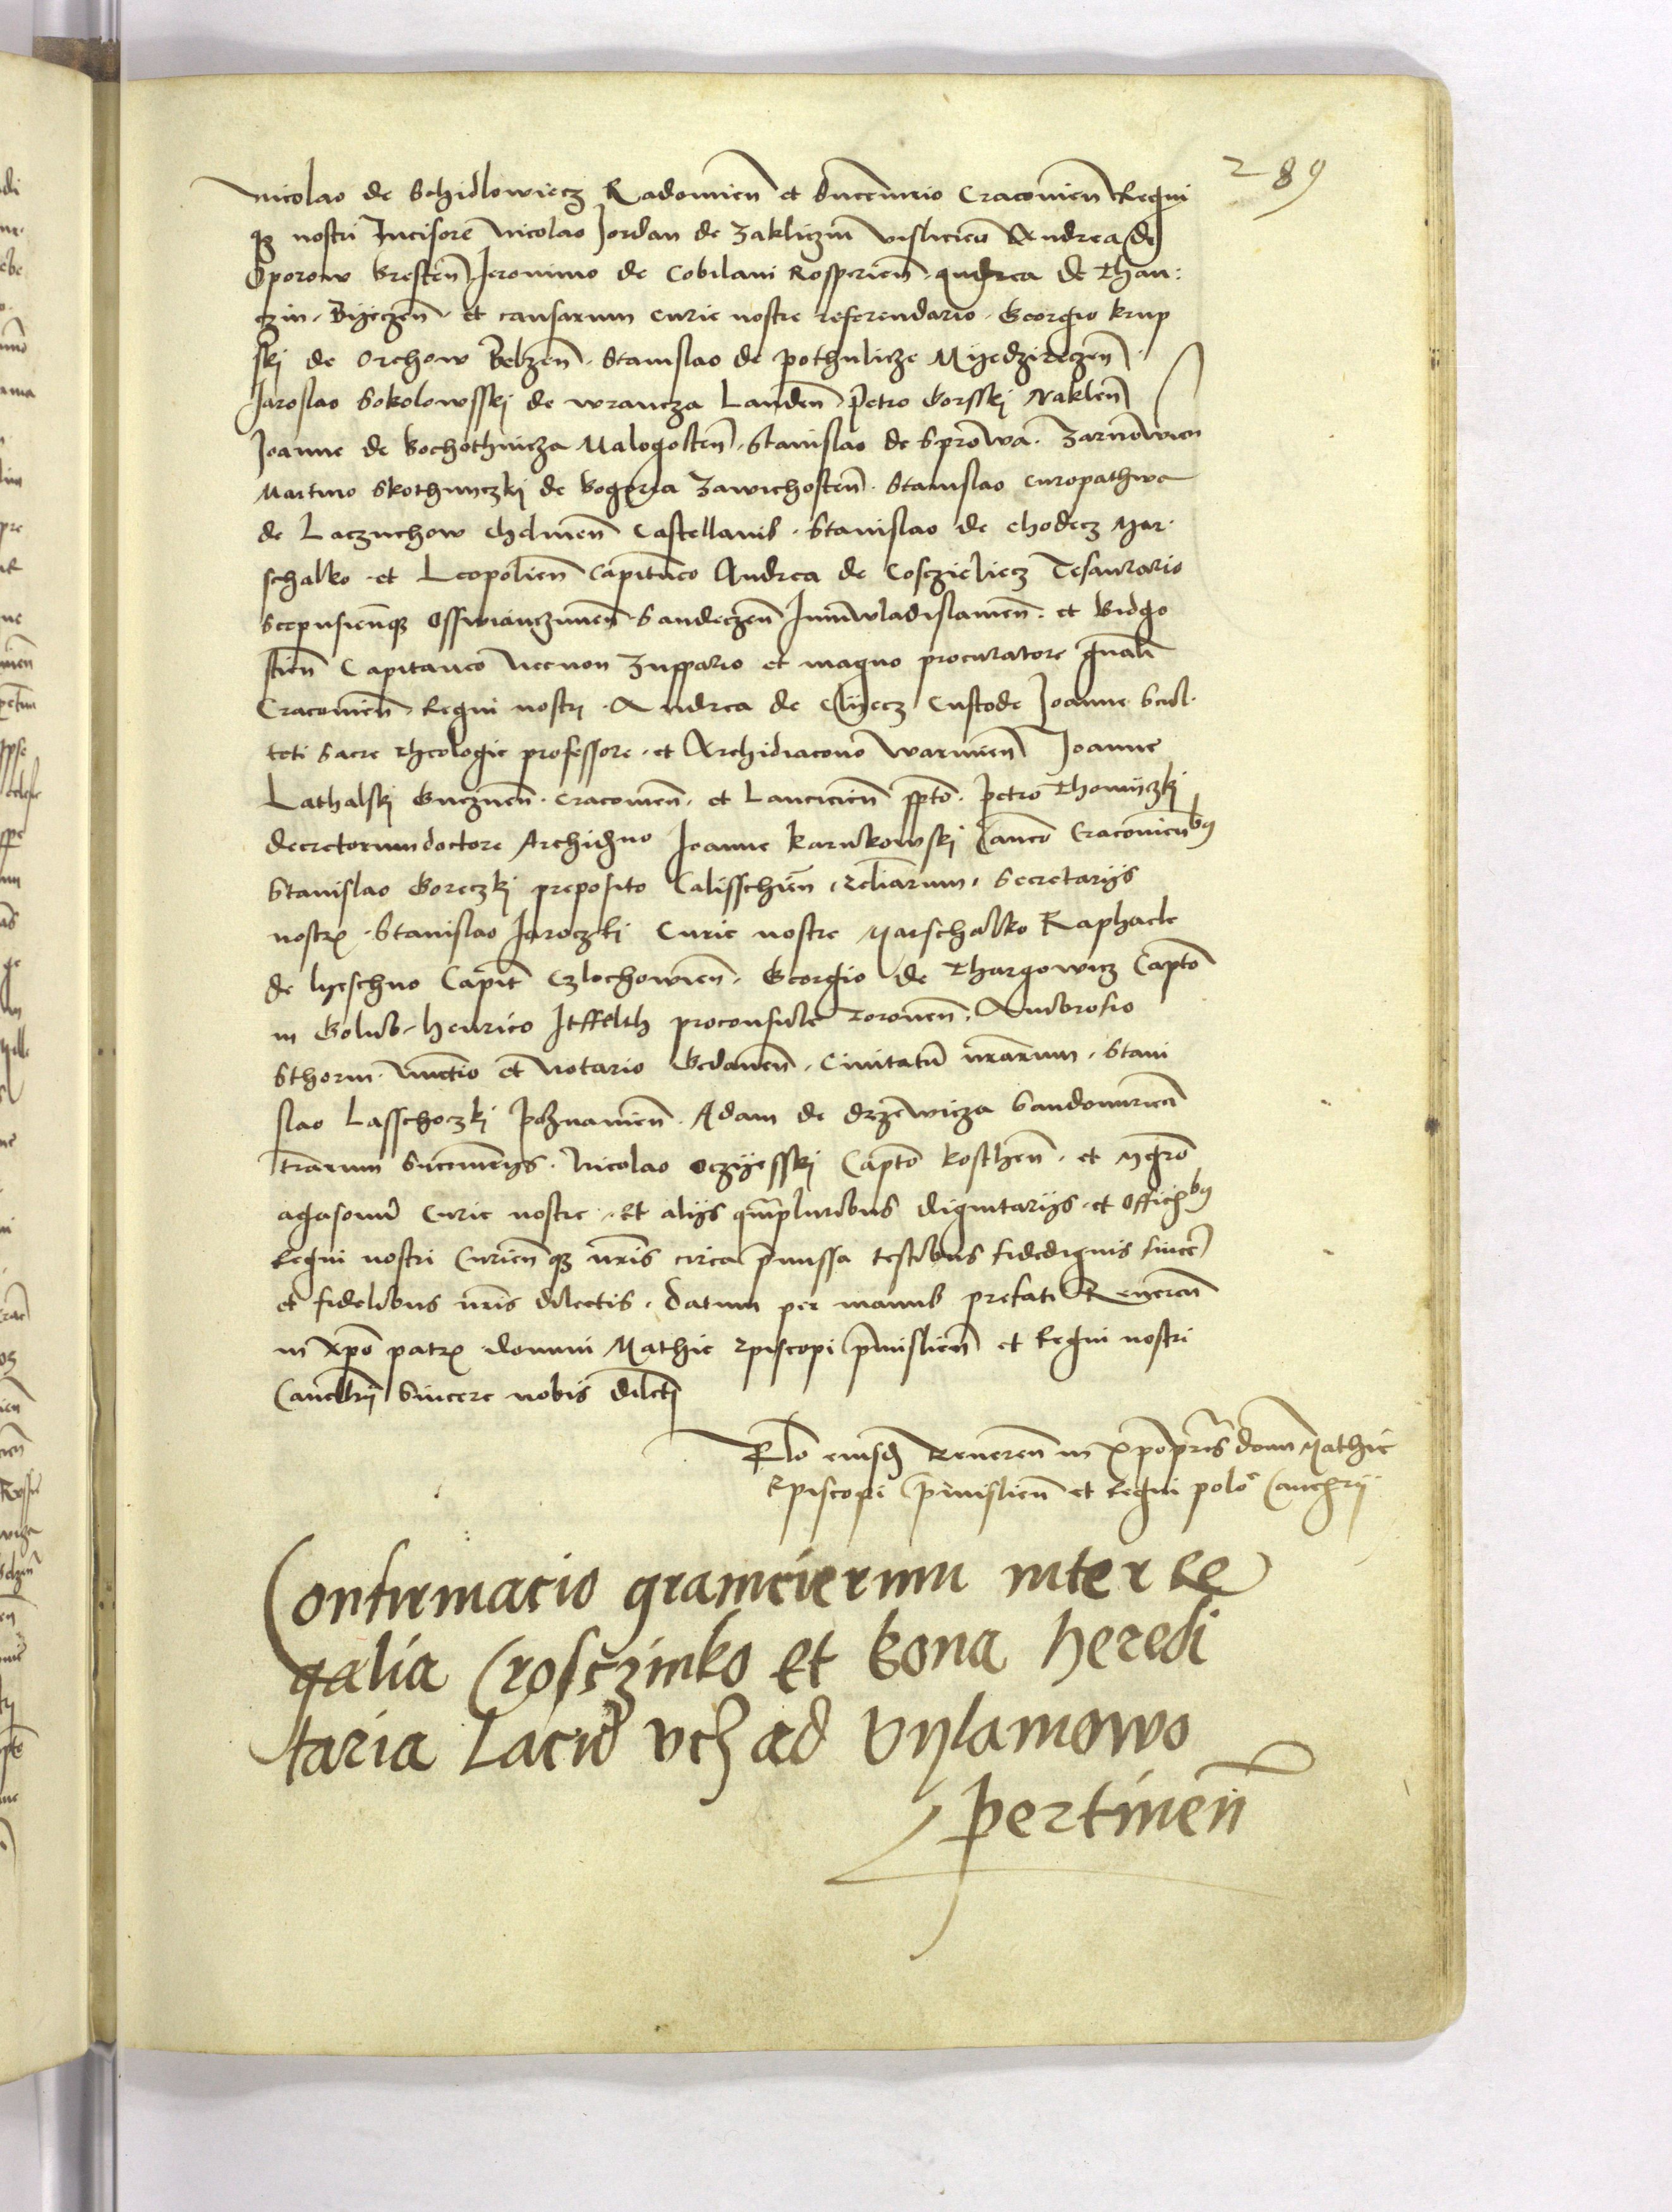 289
Nicolao de Schidlowiecz Radomien et Succamerio Cracovien Regni
qz nostri Incisore Nicolao Jordan de Zakliczin vislicien Andrea de
Oporow Bresten Jeronimo de Cobilani Rosperien Andrea de Than:
czin Byeczen et causarum curie nostre referendario Georgio krup
ski de Orchow Belzen Stanislao de pothulicze Myedzireczen
Jaroslao Sokolowsskj de wrancza Landen Petro Gorsskj Naklen
Joanne de Bochothnicza Malogosten Stanislao de Sprowa Zarnowien
Martino Skothniczkj de Bogoria Zawichosten Stanislao Curopathwa
de Laczuchow Chelmen Castellanis Stanislao de Chodecz Mar
schalko et Leopolien Capitaneo Andrea de Cosczieliecz Tesaurario
Scepusienqz Osswianczimen Sandeczen Juniwladislamen et Bidgo
stien Capitaneo Necnon Zuppario et magno procuratore gnali
Cracovien Regni nostri Andrea de Custode Joanne Scul
teti Sacre theologie professore et Archidiacono Warmien Joanne
Lathalski Gneznen Cracovien et Lancicien ppto Petro Thomyczkj
decretorum doctore Archidno Joanne Karnkowskj Canco Cracovienbus
Stanislao Goreczkj preposito Calisschien eccliarum Secretarijs
nostris Stanislao Jaroczkj Curie nostre Marschalko Raphaele
de lyeschno Capit Czlochowien Georgio de Thargowicz Capto
in Golub henrico proconsule Toronen Ambrosio
Sthorm Nuncio et Notario Gedanen Civitatu nrarum Stani
slao Lasschoczkj poznanien Adam de drzewicza Sandomirien
trarum Succamerijs Nicolao Capto kosthen et Mgro
agasonu Curie nostre et alijs qmpluribus dignitarijs et Officibus
Regni nostri Curienqz nris circa pmissa testibus fidedignis sincer
et fidelibus nris dilectis Datum per manus prefati Reveren
in xpo patris domini Mathie Episcopi pmislien et Regni nostri
Cancellarij Sincere nobis dilecti
Rlo eiusd Reveren in xpo pris domi Mathie
Episcopi pmislien et Regni polo Cancrij
Confirmacio granicierum inter Re
galia Crosczinko et Bona heredi
taria Lacu vch ad Vylamowo
pertinen